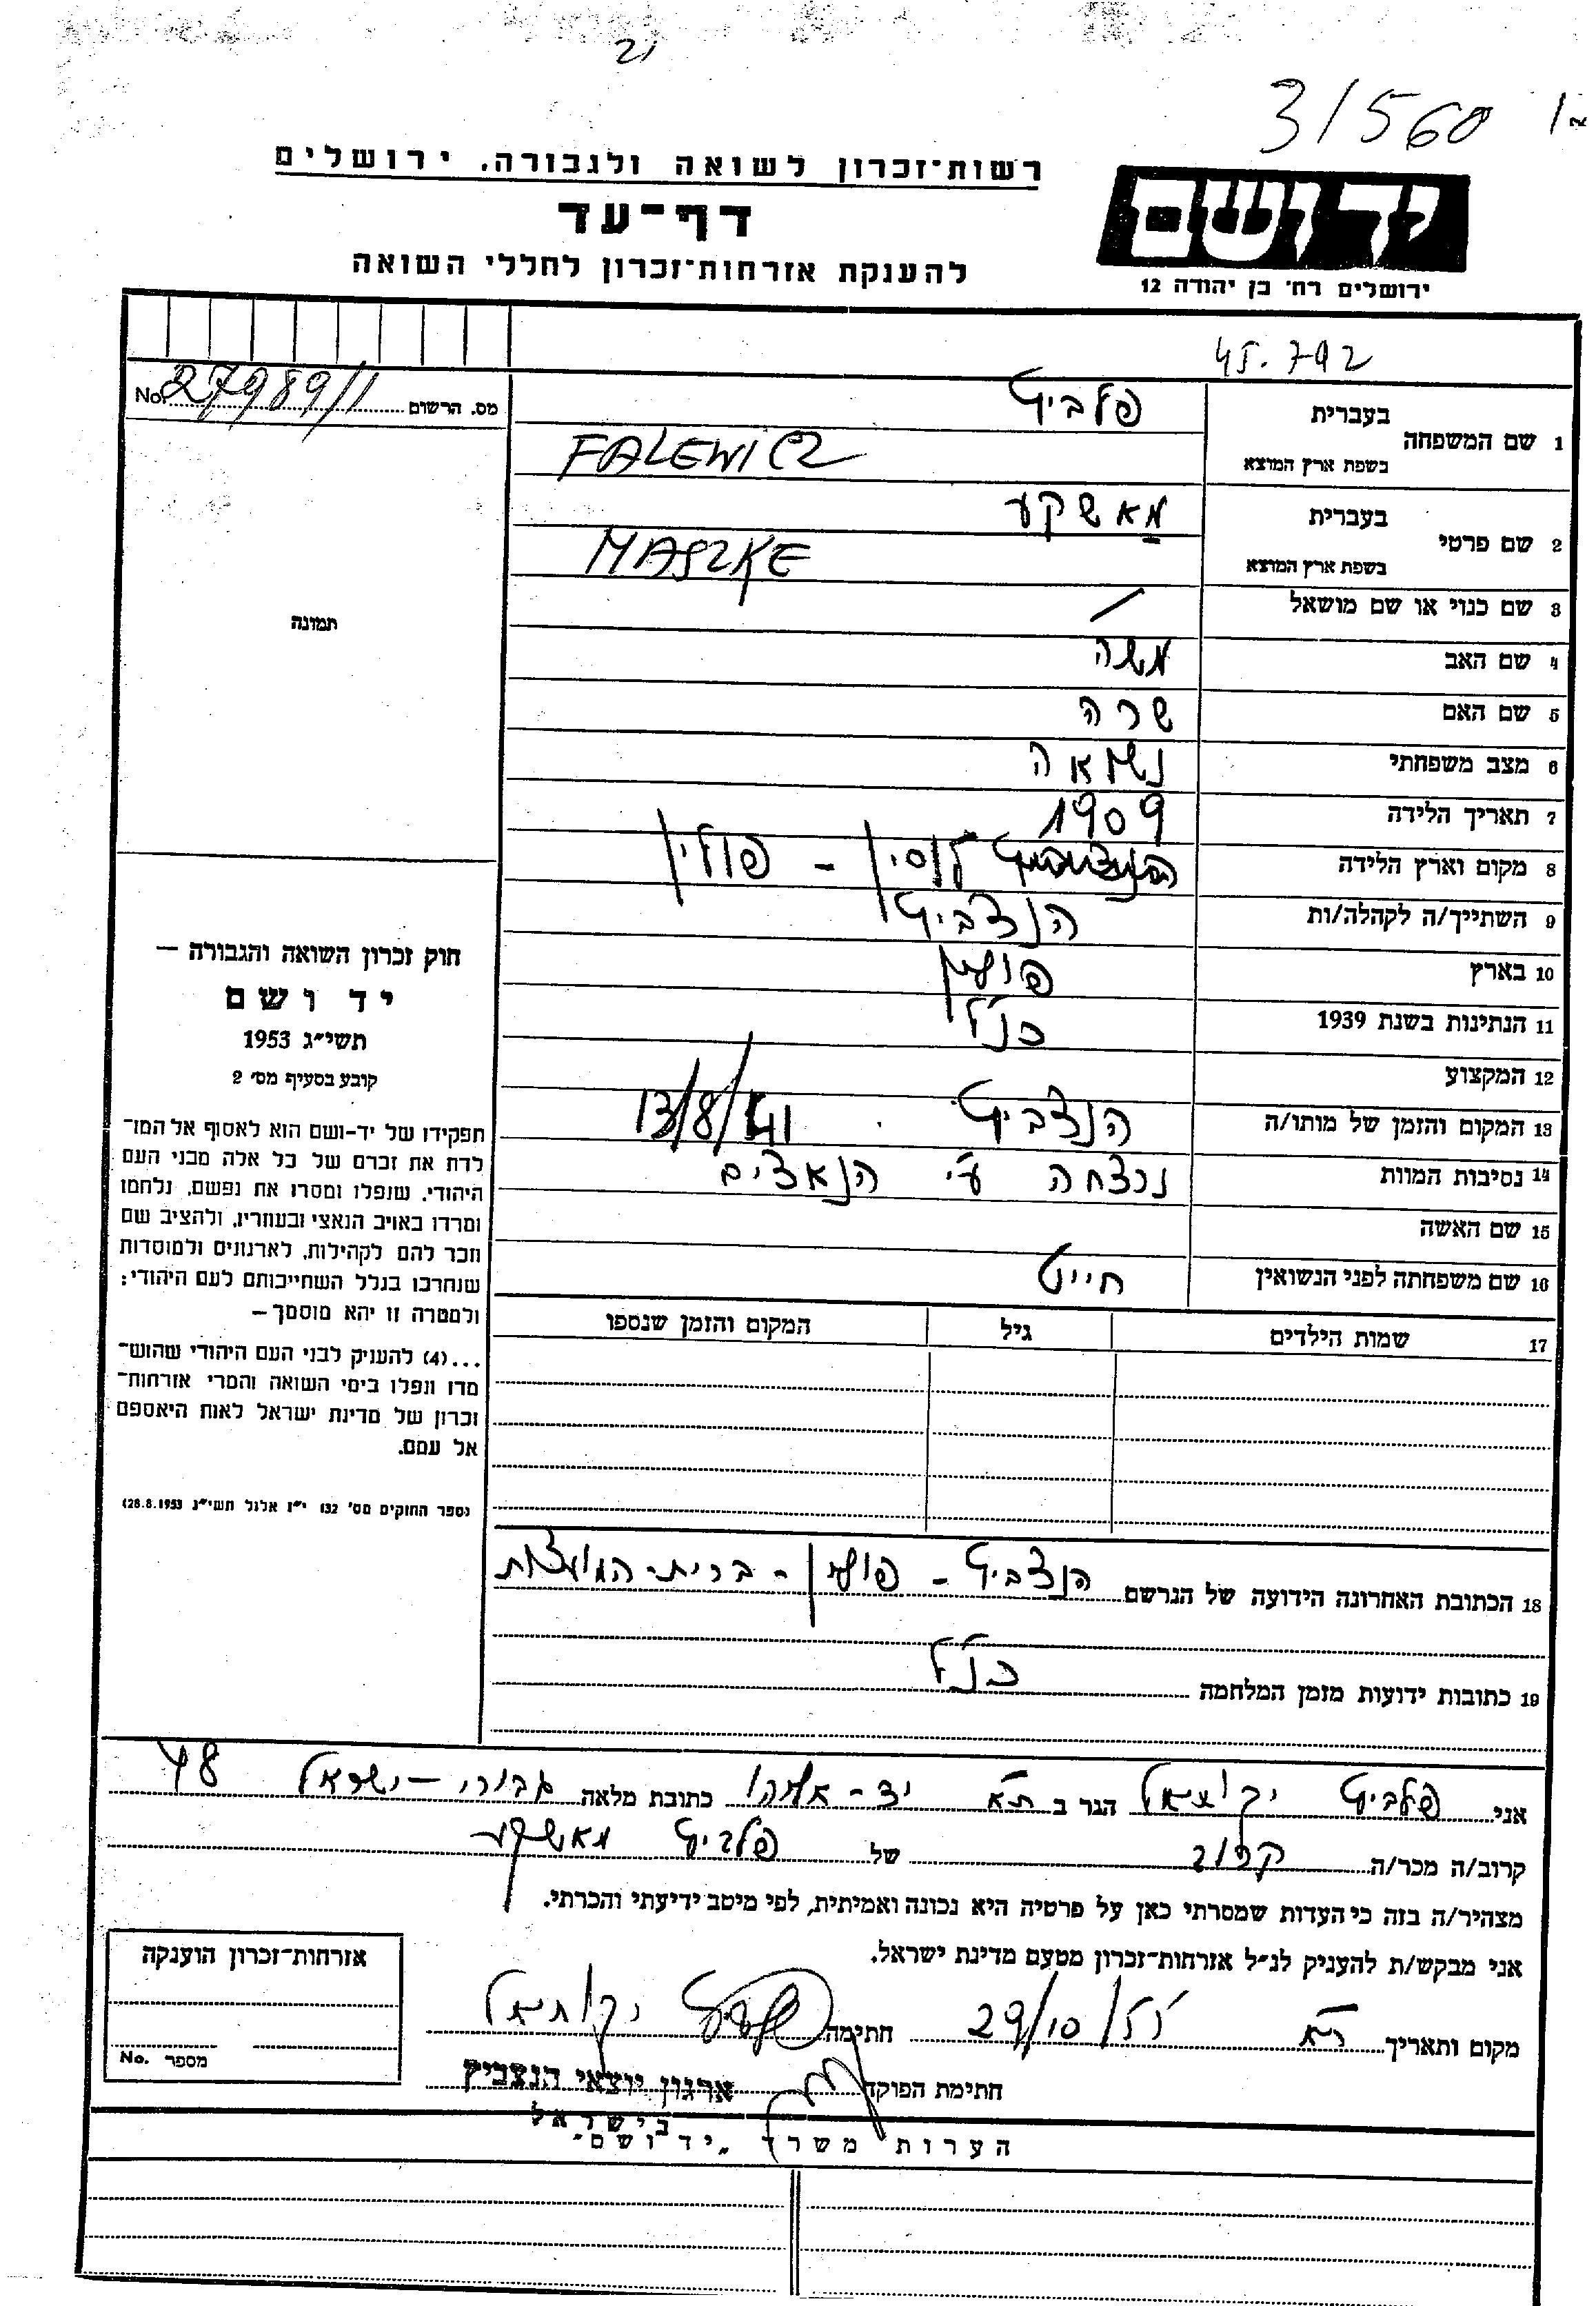 21
31560
רשות־זכרון לשואה ולגבורה. ירושלים
דף־עד
להענקת אזרחות־זכרון לחללי השואה
יד ושם
ירושלים רח' בן יהודה 12
45.792
מס. הרשום 27989/1 No.
1 שם המשפחה
בעברית פלביץ
בשפת ארץ המוצא FALEWICZ
2 שם פרטי
בעברית מאשקע
בשפת ארץ המוצא MASZKE
תמונה
3 שם כנוי או שם מושאל /
4 שם האב משה
5 שם האם שרה
6 מצב משפחתי נשואה
7 תאריך הלידה 1909
8 מקום וארץ הלידה לוסין - פולין
9 השתייך/ה לקהלה/ות הנצביץ
10 בארץ פולין
11 הנתינות בשנת 1939 כנ"ל
12 המקצוע
13 המקום והזמן של מותו/ה הנצביץ 13/8/41
14 נסיבות המוות נרצחה ע"י הנאצים
15 שם האשה
16 שם משפחתה לפני הנשואין חייט
17 שמות הילדים גיל המקום והזמן שנספו
חוק זכרון השואה והגבורה —
יד ושם
תשי״ג 1953
קובע בסעיף מס׳ 2
תפקידו של יד-ושם הוא לאסוף אל המו־
לדת את זכרם של כל אלה מבני העם
היהודי, שנפלו ומסרו את נפשם, נלחמו
ומרדו באויב הנאצי ובעוזריו, ולהציב שם
וזכר להם לקהילות, לארגונים ולמוסדות
שנחרבו בגלל השתייכותם לעם היהודי;
ולמטרה זו יהא מוסמך —
...(4) להענק לבני העם היהודי שהוש־
מדו ונפלו בימי השואה והמרי אזרחות־
זכרון של מדינת ישראל לאות היאספם
אל עמם.
(ספר החוקים מס' 132 י״ז אלול תשי״ג 28.8.1953)
18 הכתובת האחרונה הידועה של הנרשם הנצביץ - פולין - ברית-המועצות
19 כתובות ידועות מזמן המלחמה כנ"ל
אני פלביץ יקותיאל הגר ב ת"א יד-אליהו כתובת מלאה גבורי-ישראל 48
קרוב/ה מכר/ה קרוב של פלביץ מאשקע
מצהיר/ה בזה כי העדות שמסרתי כאן על פרטיה היא נכונה ואמיתית, לפי מיטב ידיעתי והכרתי.
אני מבקש/ת להעניק לנ״ל אזרחות־זכרון מטעם מדינת ישראל.
מקום ותאריך ת"א 29/10/55 חתימה פלביץ יקותיאל
חתימת הפוקד ארגון יוצאי הנצביץ
בישראל
אזרחות־זכרון הוענקה
מספר No.
הערות משרד „יד ושם״